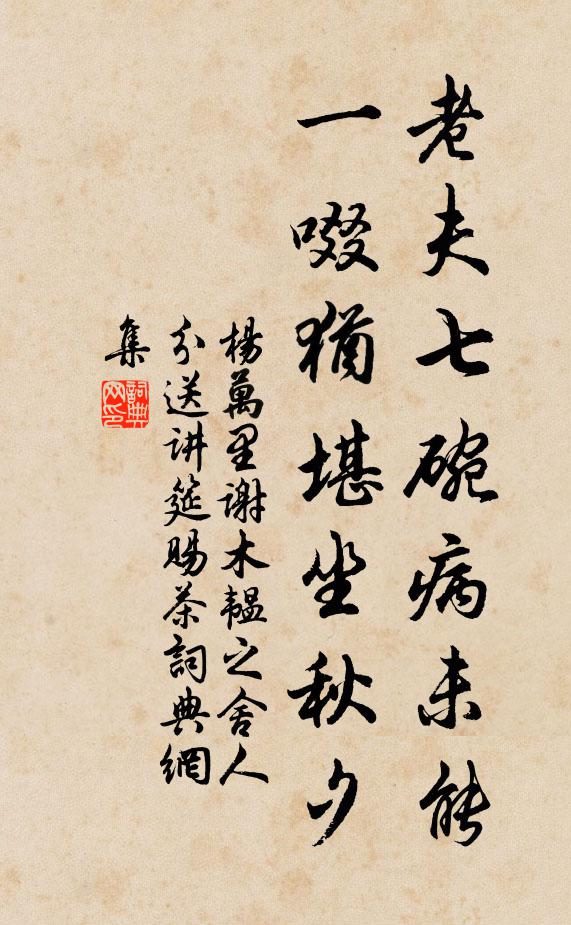 老夫七碗病未能
一啜猶堪坐秋夕
楊萬里謝木韞之舍人
分送讲筵賜茶詞典網
集
詞典
网印